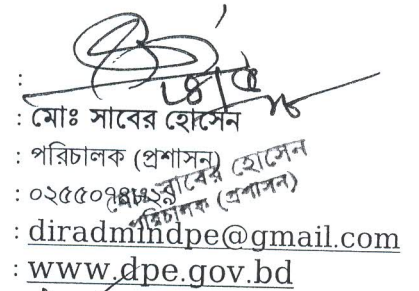 :
: মোঃ সাবের হোসেন
: পরিচালক (প্রশাসন)
সাবের হোসেন
পরিচালক (প্রশাসন)
: diradmindpe@gmail.com
: www.dpe.gov.bd